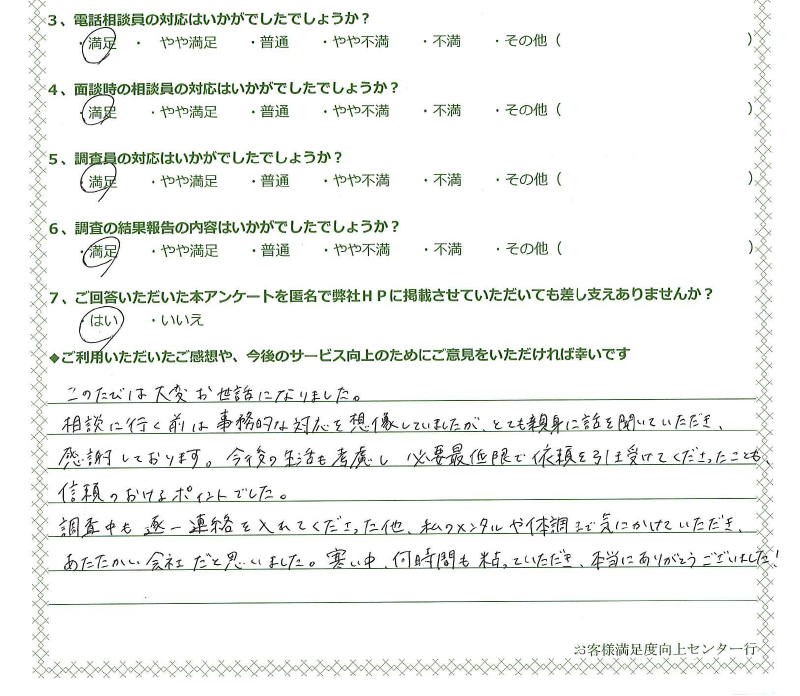 3、電話相談員の対応はいかがでしたでしょうか？
・満足 ・ やや満足 ・普通 ・やや不満 ・不満 ・その他（ ）
4、面談時の相談員の対応はいかがでしたでしょうか？
・満足 ・やや満足 ・普通 ・やや不満 ・不満 ・その他（ ）
5、調査員の対応はいかがでしたでしょうか？
・満足 ・やや満足 ・普通 ・やや不満 ・不満 ・その他（ ）
6、調査の結果報告の内容はいかがでしたでしょうか？
・満足 ・やや満足 ・普通 ・やや不満 ・不満 ・その他（ ）
7、ご回答いただいた本アンケートを匿名で弊社ＨＰに掲載させていただいても差し支えありませんか？
・はい ・いいえ
◆ご利用いただいたご感想や、今後のサービス向上のためにご意見をいただければ幸いです
このたびは大変お世話になりました。
相談に行く前は事務的な対応を想像していましたが、とても親身に話を聞いていただき、
感謝しております。今後の生活も考慮し 必要最低限で依頼を引き受けてくださったことも、
信頼のおけるポイントでした。
調査中も逐一連絡を入れてくださった他、私のメンタルや体調まで気にかけていただき、
あたたかい会社だと思いました。寒い中、何時間も粘っていただき、本当にありがとうございました！
お客様満足度向上センター行